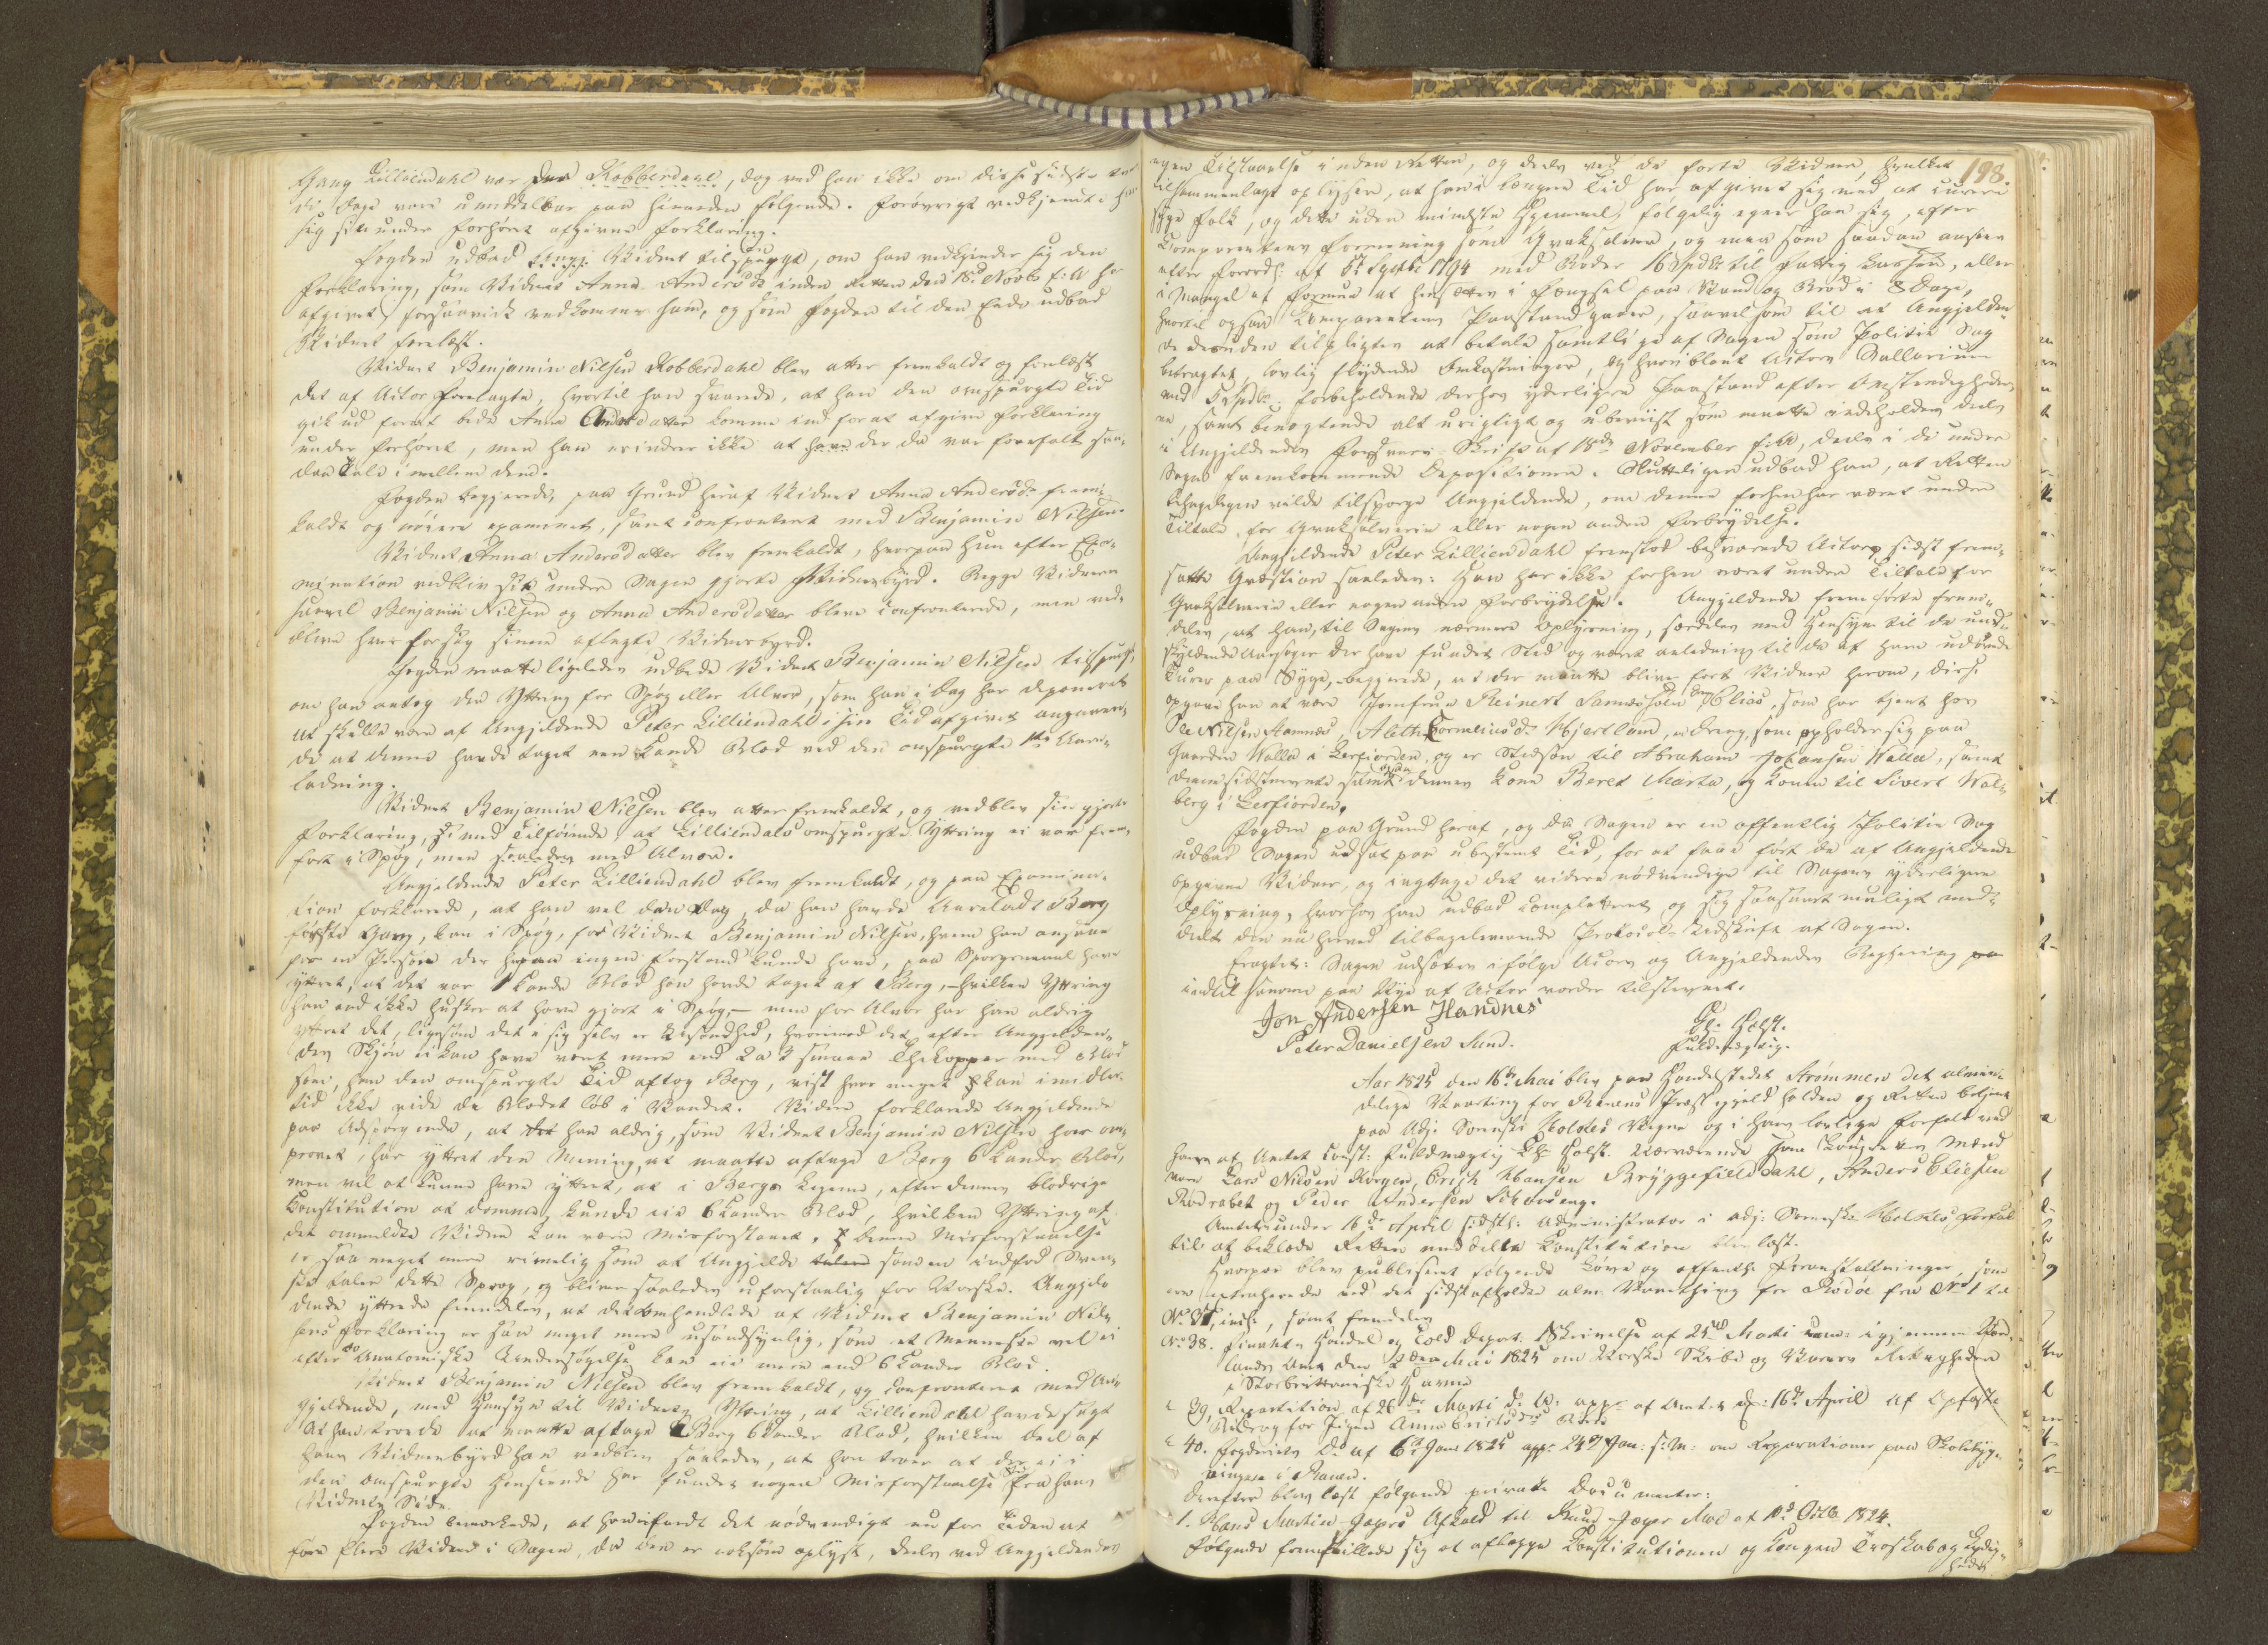 Gang Lilliendahl var paa Kobberdahl, dog ved han ikke om disse sidste
to Dage vare umiddelbar paa hinanden følgende. Forøvrigt vedkjendte han
sig sin under Forhøret afgivne Forklaring.
Fogden udbad Vidnet tilspurgt, om han vedkjender sig den
Forklaring, som Vidnet Anna Andersd: inden Retten den 18d Novbr f: A har
afgivet forsaavidt vedkommer ham, og som Fogden til den Ende udbad
Vidnet forelæst.
Vidnet Benjamin Nilsen Kobberdahl blev atter fremkaldt og forelæst
det af Actor forelagte, hvortil han svarede, at han den omspurgte Tid
gik ud for at bede Anna Andersdatter komme ind for at afgive Forklaring
under Forhøret, men han erindrer ikke at have der da var forefalt saa-
dan Tale imellem dem.
Fogden begjærede, paa Grund heraf Vidnet Anna Andersd: frem-
kaldt og nøiere examineret, samt confronteret med Benjamin Nilsen.
Vidnet Anna Andersdatter blev fremkaldt, hvorpaa hun efter Exa-
mination vedblev sit under Sagen gjorte Vidnesbyrd. Begge Vidnerne
saavel Benjamin Nilsen og Anna Andersdatter bleve confronterede, men ved-
bleve hver for sig sinne aflagte Vidnesbyrd.
Fogden maatte ligeledes udbede Vidnet Benjamin Nilsen tilspurgt,
om han antog den Yttring for Spøg eller Alvor, som han i Dag har deponeret
at skulle være af Angjeldende Peter Lilliendahl i sin Tid afgivet angaaen-
de at denne havde taget een Kande Blod ved den omspurgte 1ste Aare-
ladning.
Vidnet Benjamin Nilsen blev atter fremkaldt, og vedblev sin gjorte
Forklaring, med Tilføiende at Lilliendals omspurgte Yttring ei var frem-
ført i Spøg, men saaledes med Alvor.
Angjeldende Peter Lilliendahl blev fremkaldt, og paa Examina-
tion forklarede, at han vel den Dag, da han havde Aareladt Berg
første Gang, kan i Spøg, for Vidnet Benjamin Nilsen, hvem han ansaae
for en Person der ingen Forstand kunde have, paa Spørgsmaal have
yttret, at det var 1 Kande Blod han havde taget af Berg, – hvilken Yttring
han end ikke husker at have gjort i Spøg, – men for Alvor har han aldrig
yttret det, ligesom det i sig selv er Usandhed, hvorimod det efter Angjelden-
des Skjøn ei kan have været mere end 2 a 3 smaae Thekopper med Blod
som han den omspurgte Tid aftog Berg, vist hvor meget kan imidler-
tid ikke vide da Blodet løb i Vandet. Videre forklarede Angjeldende
paa Adspørgende, at han aldrig, som Vidnet Benjamin Nilsen har om-
provet, har yttret den Mening, at maatte aftage Berg 6 Kander Blod,
men vel at kunne have yttret, at i Bergs Legeme, efter dennes blodrige
Constitution at dømme, kunde være 6 Kander Blod, hvilken Yttring af
det ommeldte Vidne kan være misforstaaet, denne Misforstaaelse
er saa meget mere rimelig som at Angjeldende som en indfød Sven-
ske taler dette Sprog, og bliver saaledes uforstaaelig for Norske. Angjel-
dende yttrede fremdeles, at det omhandlede af Vidnet Benjamin Nils-
sens Forklaring er saa meget mere usandsynlig, som et Menneske vel ei
efter Anatomiske Undersøgelse kan eie mere end 6 Kander Blod.
Vidnet Benjamin Nilsen blev fremkaldt, og confronteret med An-
gjeldende, med Hensyn til Vidnets Yttring, at Lilliendahl havde sagt
at han troede at maatte aftage Berg 6 Kander Blod, hvilken Deel af
hans Vidnesbyrd han vedblev saaledes, at han troer at der ei i
den omspurgte Henseende har fundet nogen Misforstaaelse Sted fra hans
Vidnets Side.
Fogden bemærkede, at han ei fandt det nødvendigt nu for Tiden at
føre flere Vidner i Sagen, da den er noksom oplyst, deels ved Angjeldendes
198.
egen Tilstaaelse inden Retten, og deels ved de førte Vidner, hvilket
tilsammenlagt oplyser, at han i længere Tid har afgivet sig med at curere
syge Folk, og dette uden mindste Hjemmel, følgelig egner han sig, efter
Comparentens Formening som Qvaksalver, og maa som saadan ansees
efter Forordn: af 5te Septbr 1794 med Bøder 16 Spdlr til Fattig Cassen, eller
i Mangel af Formue at hensættes i Fængsel paa Vand og Brød i 8 Dage,
hvortil ogsaa Comparentens Paastand gaaer, saavelsom til at Angjelden-
de desuden tilpligtes at betale samtlige af Sagen som Politie Sag
betragtet, lovlig flydende Omkostninger, og hvoriblandt Actors Sallarium
med 5 Spdlr: forbeholdende derhos yderligere Paastand efter Omstændighederne
, samt benægtende alt urigtigt og ubeviist som maatte indeholdes deels
i Angjeldendes Forsvars-Skrift af 18de November f: A:, deels i de under
Sagen fremkommende Depositioner. Sluttelig udbad han, at Retten
behageligen vilde tilspørge Angjeldende, om denne forhen har været under
Tiltale for Qvaksalverie eller nogen anden Forbrydelse.
Angjeldende Peter Lilliendahl fremstod besvarede Actors sidst frem-
satte Qvæstion saaledes: Han har ikke forhen været under Tiltale for
Qvaksalverie eller nogen anden Forbrydelse. Angjeldende fremførte frem-
deles, at han, til Sagens nærmere Oplysning, særdeles med Hensyn til de und-
skyldende Aarsager der have fundet Sted og været anledning til de af ham udøvede
Curer paa Syge, begjærede, at der maatte blive ført Vidner herom, disse
opgav han at være Jomfrue Reinert Elias, som har tjent hos
Ole Nilsen Aamnes, Aleth Corneliusd: Hjertland, en Dreng, som opholder sig paa
Gaarden Walla i Lerfiorden, og er Stedsøn til Abraham Johansen Walla, samt
denne sidstnævnte samt dennes Kone Beret Marta, og Konen til Sivert Wal-
berg i Lerfiorden.
Fogden paa Grund heraf, og da Sagen er en offentlig Politie Sag
udbad Sagen udsat paa ubestemt Tid, for at faae ført de af Angjeldende
opgivne Vidner, og iagttage det videre nødvendige til Sagens yderligere
Oplysning, hvorhos han udbad completteret og sig saasnart muligt med-
deelt den nu herved tilbageleverende Protocol-Udskrift af Sagen.
Eragtet: Sagen udsættes ifølge Actors og Angjeldendes Begjæring
indtil samme paa Nye af Actor vorder tilstevnet.
Jon Andersen Handnes
Peter Danielsen Sund.
Ch. Holst.
Fuldmægtig.
Aar 1825 den 16de Mai blev paa Handelstedet Strømmen det almin-
delige Vaarting for Ranens Præstegjeld holden og Retten betjent
paa Adj: Sorenskr: Holstes Vegne og i hans lovlige Forfald ved
hans af Amtet const: Fuldmægtig Ch Holst. Nærværende som Laugrettes Mænd
vare Lars Nilsen Korgen, Erich Hansen Bryggefieldahl, Anders Eliesen
Rødrabet og Peder Andersen
Amtets under 16de April sidstl: Administrator i adj: Sorenskr: Holstes Forfald
til at beklæde Retten meddelte Constitution blev læst.
Hvorpaa blev publiceret følgende Love og offentl: Foranstaltninger, som
ere extraherede ved det sidst afholdte alm: Vaarthing for Rødøe fra No 1 til
No 37, incl:, samt fremdeles
No 38. Finants- Handel og Told Depart: Skrivelse af 25de Marti igjennem Nord-
lands Amt den 2den Mai 1825 om Norske Skibe og Varers Rettigheder
i Storbrittaniske Havne
" 39, Repartition af 26de Marti d: A: app: af Amtet d: 16de April af Opfostr
Bidrag for Pigen Anne
" 40. Fogderiets Do af 6te Jan 1825 app: 24de Jan: s: A: om Reparationer paa Skolebyg-
ningen i Ranen.
Derefter blev læst følgende private Documenter:
1. Hans Martin Jægers Afkald til Knud Jæger Moe af 1d Octb 1824.
Følgende fremstillede sig at aflægge Constitutionen og Kongen Troskab og Lydig-
heds